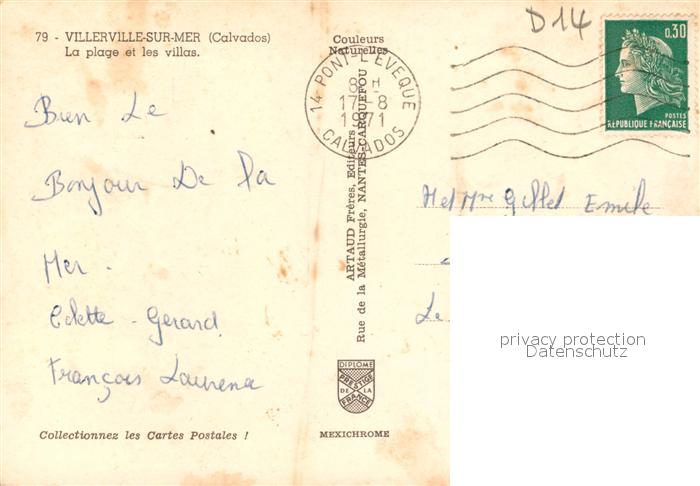 79 - VILLERVILLE-SUR-MER (Calvados)
La plage et les villas.
Bien Le
Bonjour De la
Mer.
Colette - Gerard
François Laurence
Collectionnez les Cartes Postales !
Couleurs
Naturelles
ARTAUD Frères, Editeurs
Rue de la Métallurgie, NANTES-CARQUEFOU
DIPLOME
PRESTIGE
DE LA
FRANCE
MEXICHROME
14 PONT-L'EVEQUE
8 H
17-8
1971
CALVADOS
D14
0,30
POSTES
REPUBLIQUE FRANÇAISE
M et Mme Gillet Emile
Le
privacy protection
Datenschutz